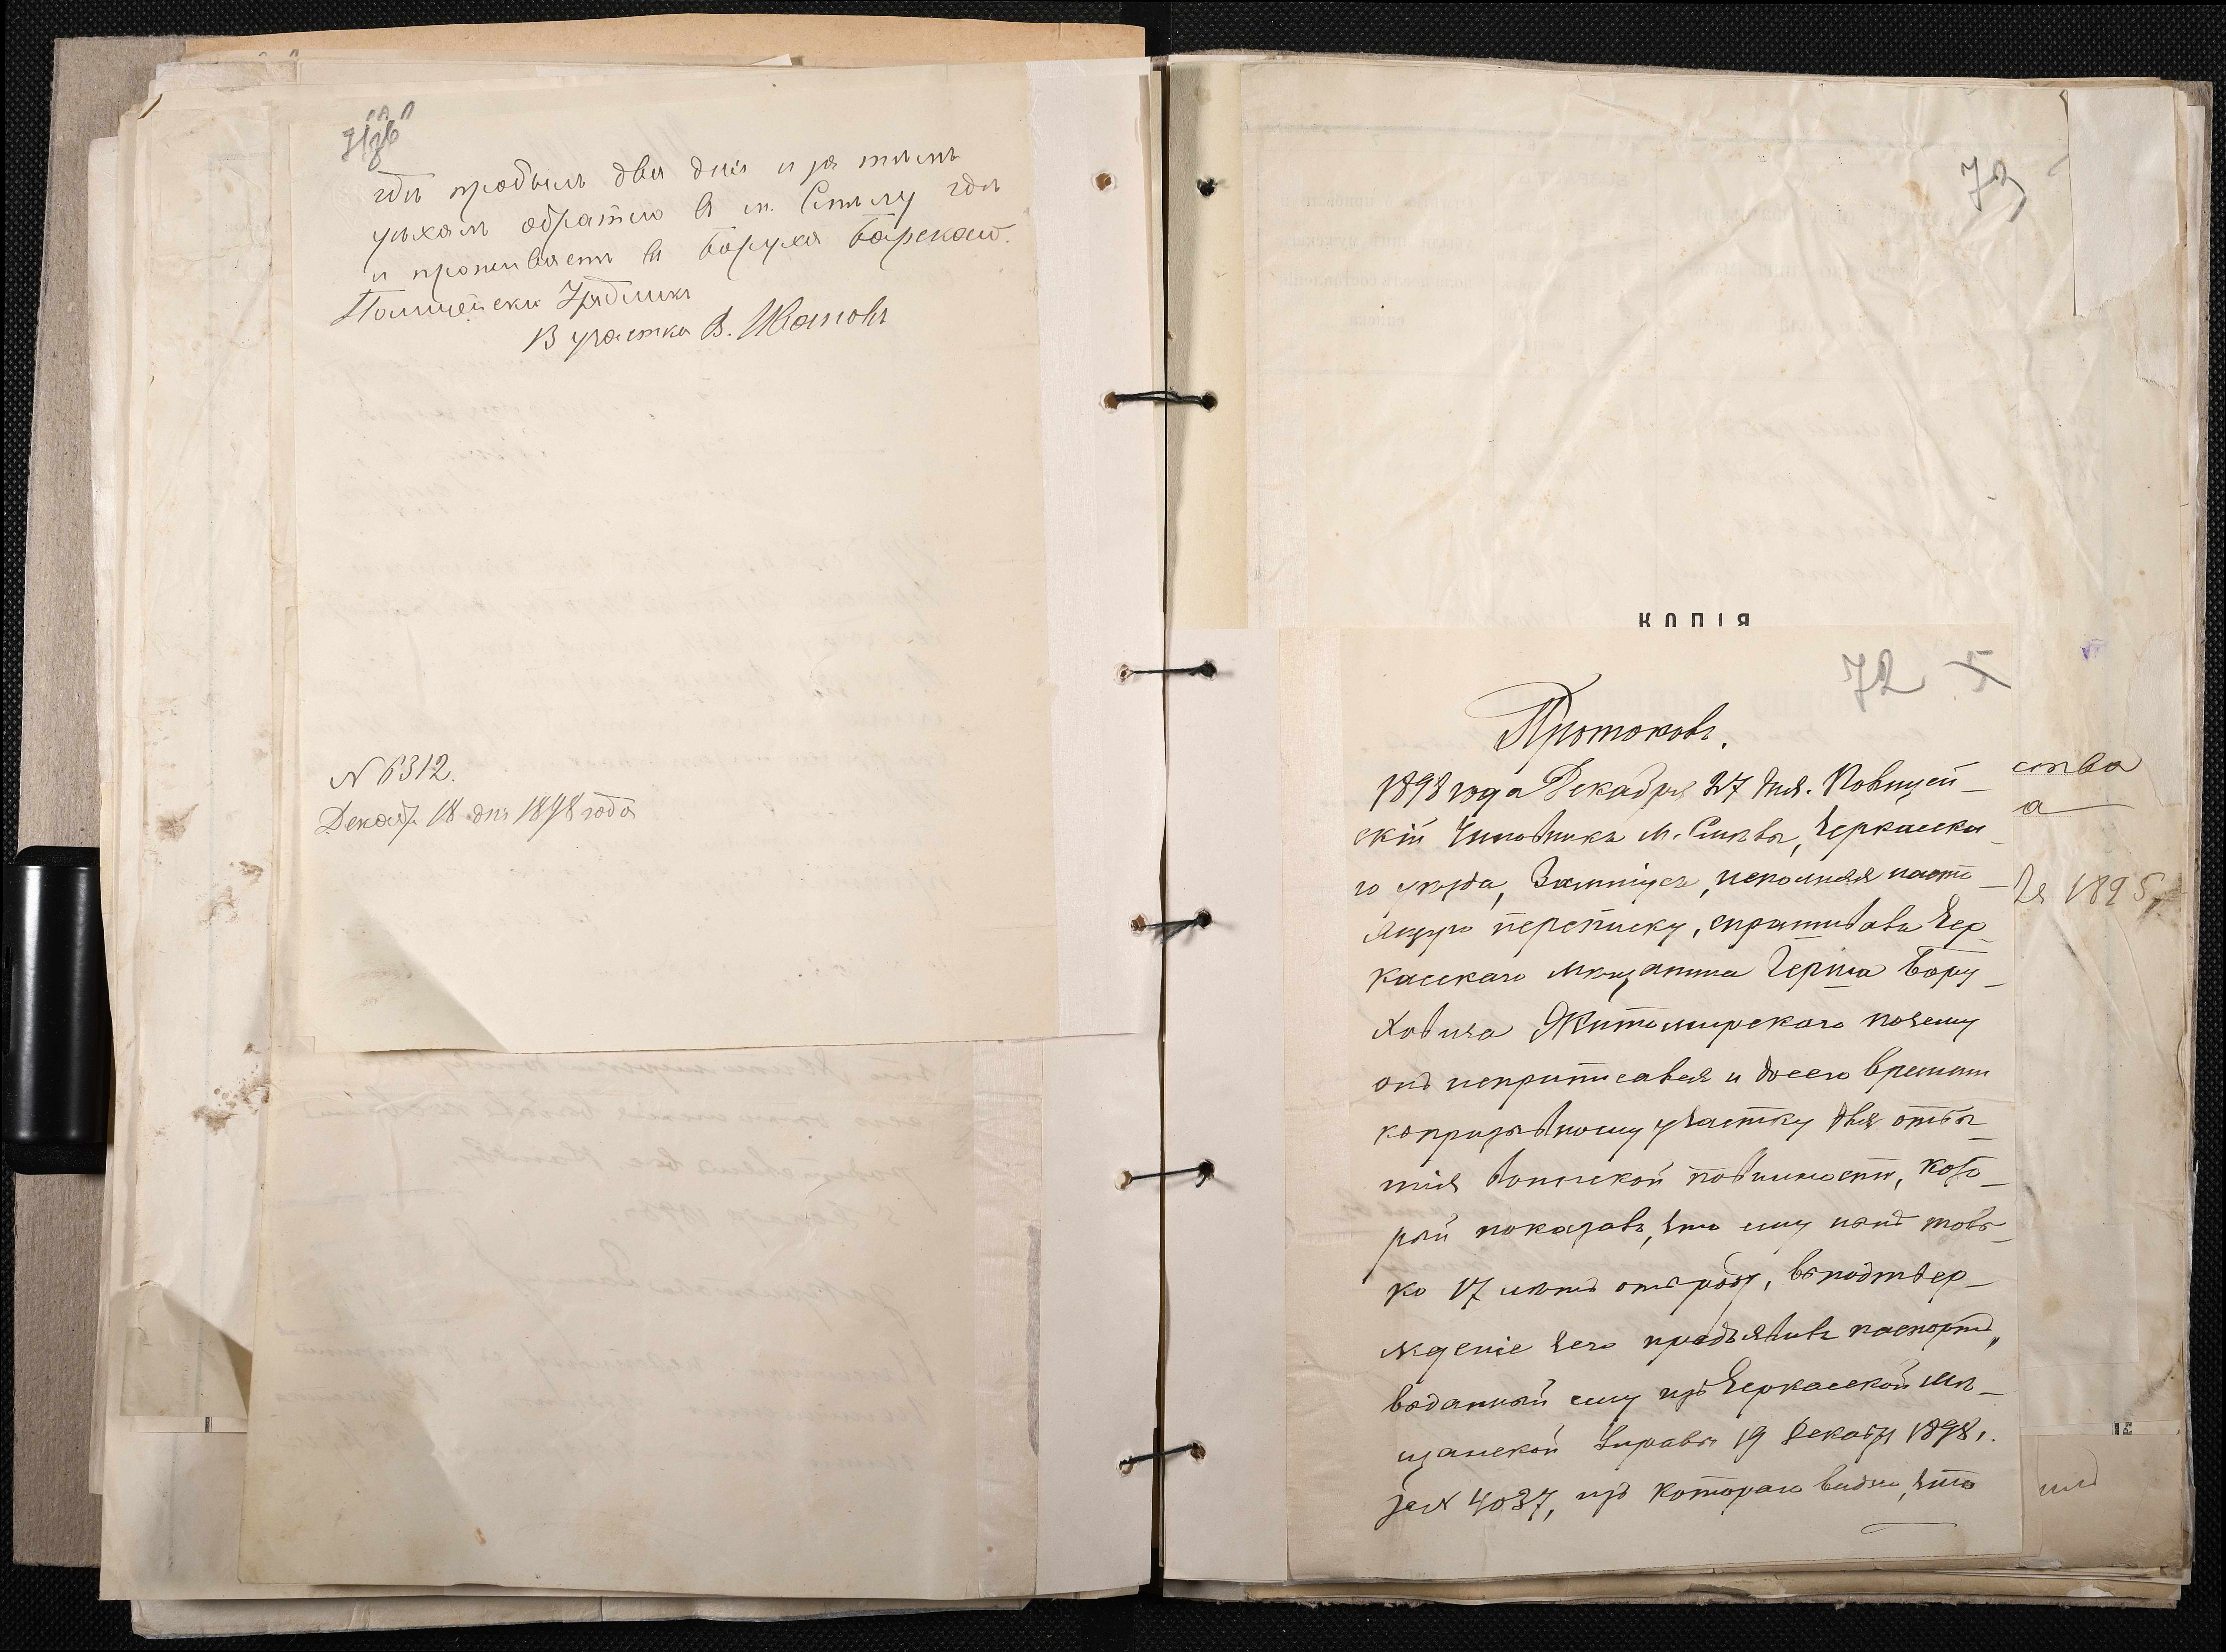 гдѣ пробылъ два дня и за тѣмъ
уѣхалъ обратно в м. Смѣлу гдѣ
и проживаетъ в Баруха
Полицейски Урядникъ
13 участка В. Ивановъ
N 6312.
Декаб. 18 дня 1898 года
73
КОПІЯ
72 5
Протоколъ.
1898 года Декабря 27 дня. Полицей-
скій Чиновникъ М. Смѣлы, Черкасска-
го уѣзда, исполняя насто-
ящую переписку, спрашивалъ Чер-
касскаго мѣщанина Герша Бору-
ховича Житомирскаго почему
онъ неприписался и досего времени
копризывному участку для отбы-
тія воинской повинности, кото-
рый показалъ, что ему нынѣ толь-
ко 17 лѣтъ отъ роду, въ подтвер-
жденіе чего предъявилъ паспортъ,
выданный ему изъ Черкасской мѣ-
щанской Управы 19 Декабр 1898 г.
за N 4037, изъ котораго видно, что
ства
а
1895